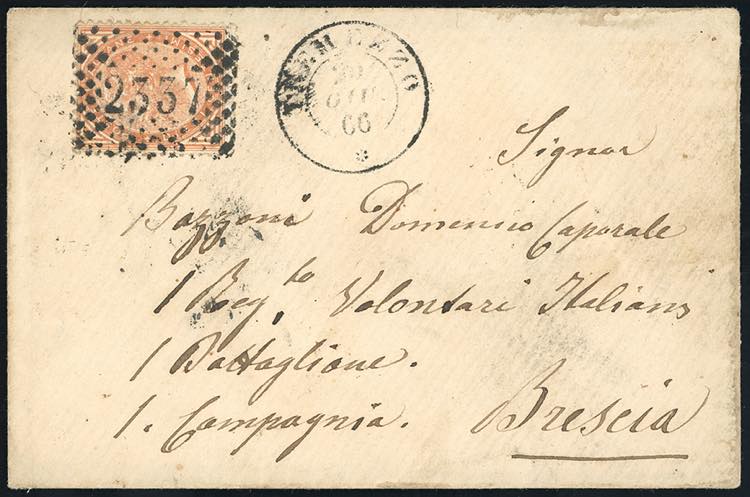 2337
TREMEZZO
20
GIU
66
Signor
Bozzoni Domenico Caporale
1 Regto Volontari Italiani
1 Battaglione.
1. Compagnia. Brescia